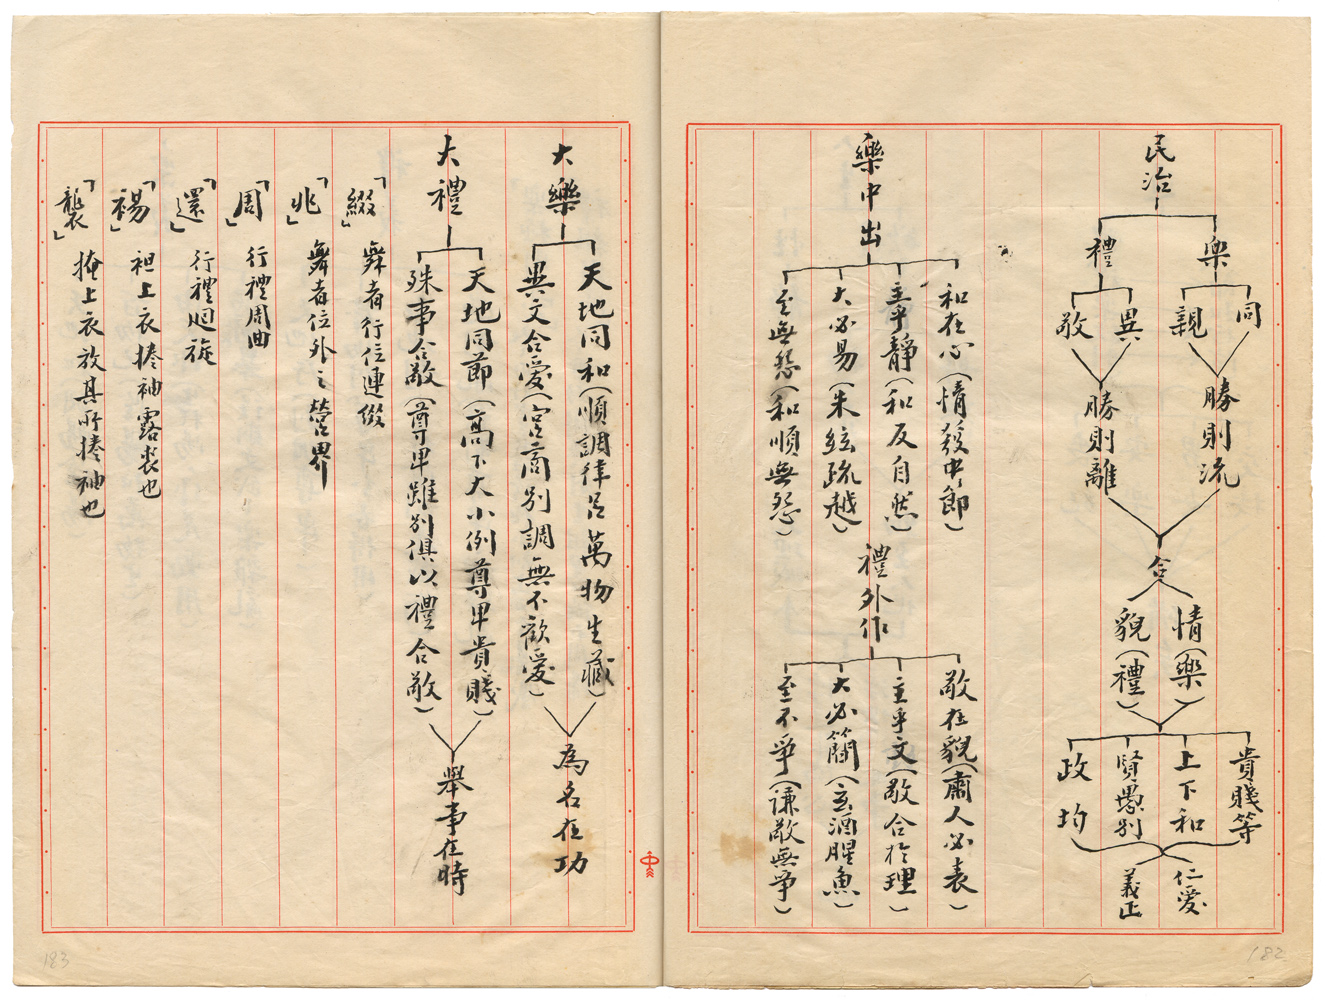 民治
樂
同
親
勝則流
禮
異
敬
勝則離
合
情（樂）
貌（禮）
貴賤等
上下和
賢愚別
政均
仁愛
義正
樂中出
和在心（情發中節）
主乎靜（和反自然）
大必易（朱絃疏越）
至無怨（和順無怨）
禮外作
敬在貌（肅人必表）
主乎文（敬合於理）
大必簡（玄酒腥魚）
至不爭（謙敬無爭）
182
大樂
天地同和（順調律呂萬物生藏）
異文合愛（宮商別調無不歡愛）
為名在功
大禮
天地同節（高下大小例尊卑貴賤）
殊事合敬（尊卑雖別俱以禮合敬）
舉事在時
「綴」舞者行位連綴
「兆」舞者位外之營界
「周」行禮周曲
「還」行禮迴旋
「裼」袒上衣捲袖露裘也
「襲」掩上衣放其所捲袖也
183